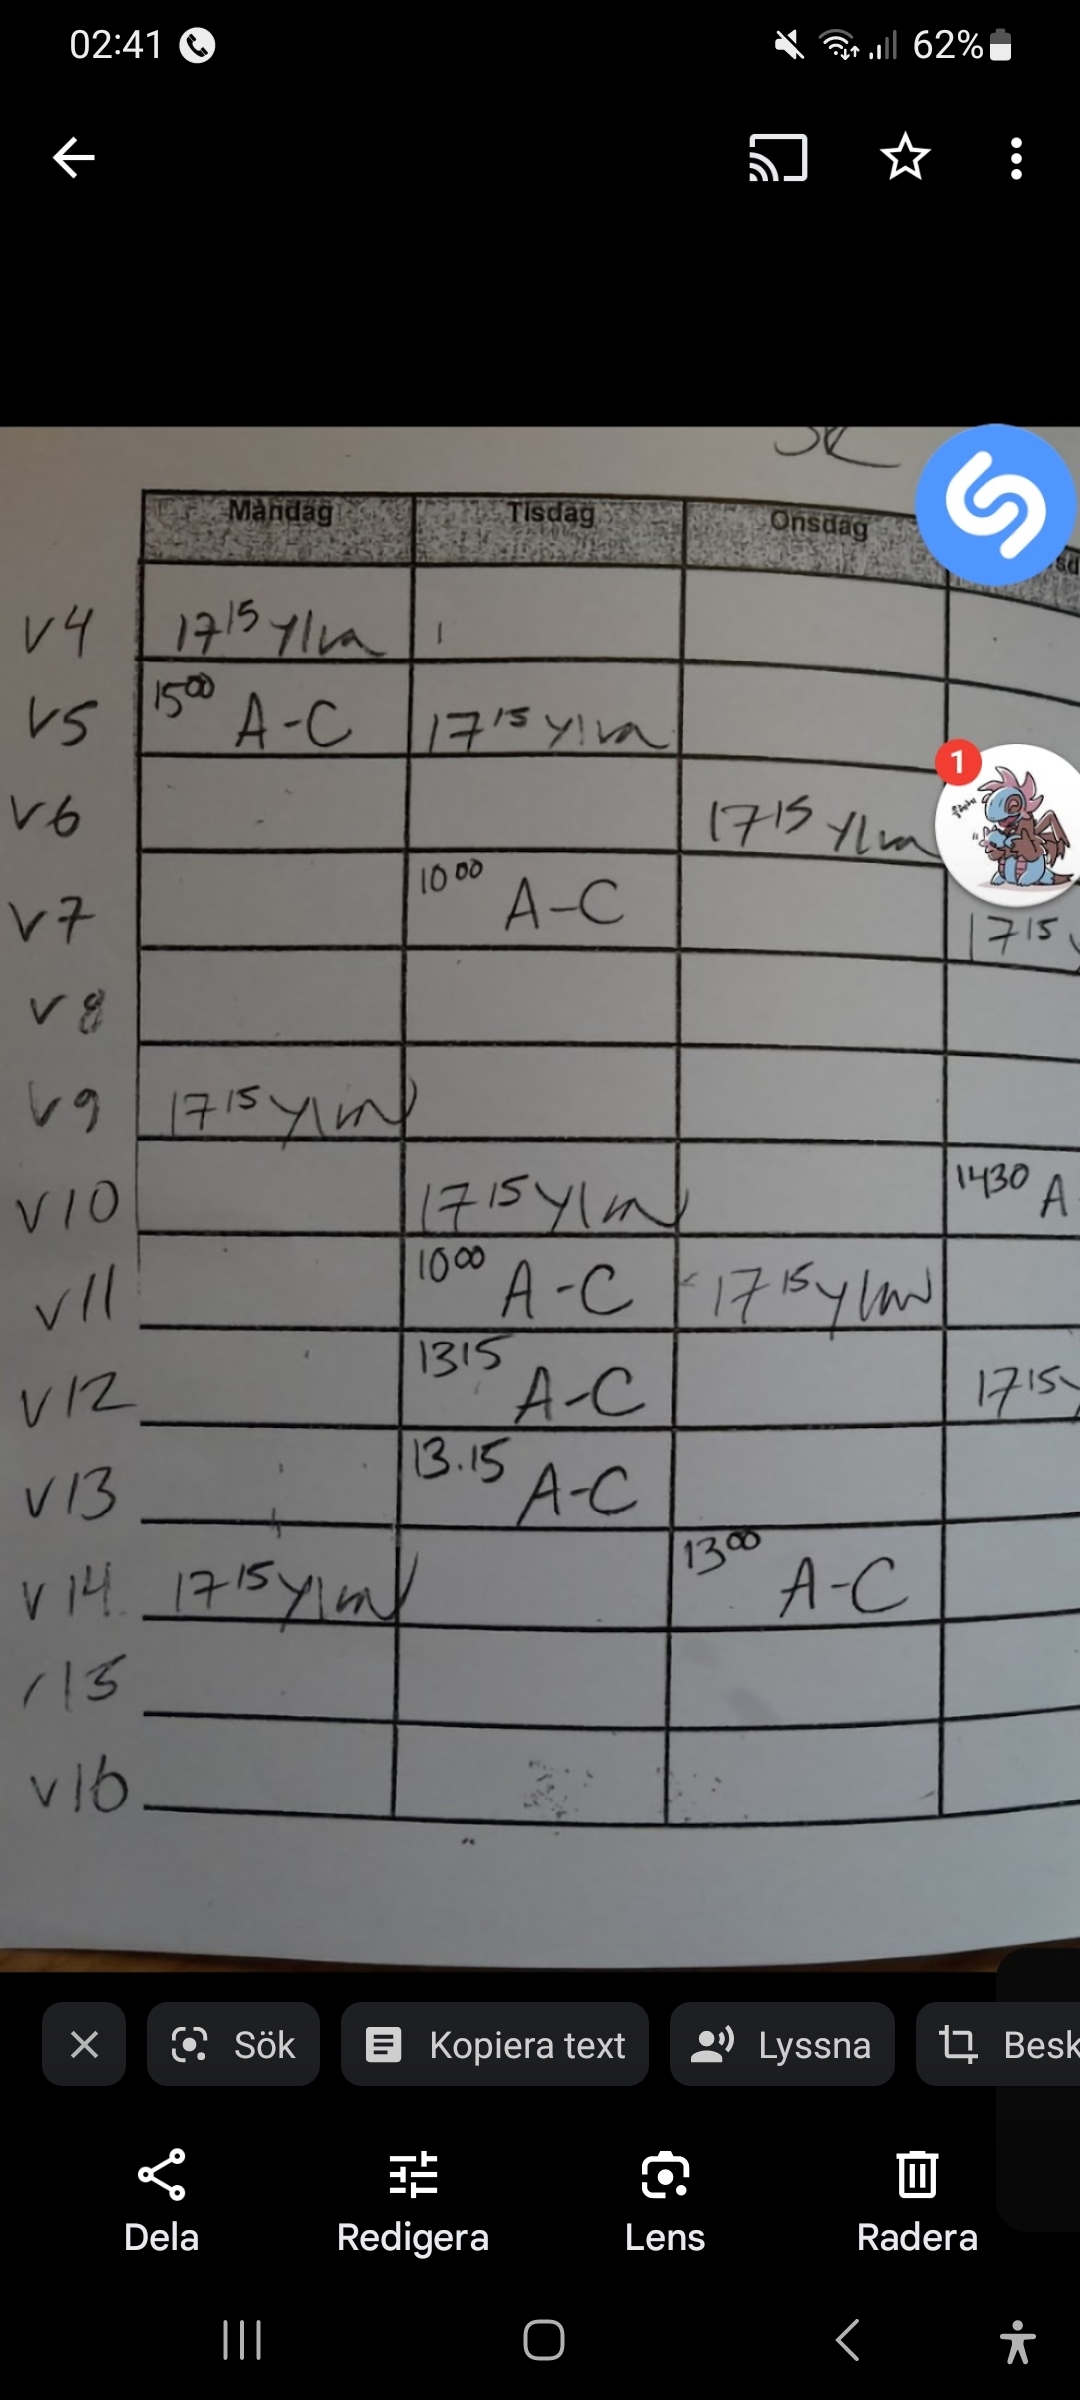 02:41 62%
Måndag Tisdag Onsdag
v4 17 15 Ylva
v5 15 00 A-C 17 15 Ylva
v6 17 15 Ylva
1
v7 10 00 A-C 17 15
v8
v9 17 15 Ylva
v10 17 15 Ylva 1430 A
v11 10 00 A-C 17 15 Ylva
v12 1315 A-C 17 15
v13 13.15 A-C
v14 17 15 Ylva 13 00 A-C
v15
v16
Sök Kopiera text Lyssna Besk
Dela Redigera Lens Radera